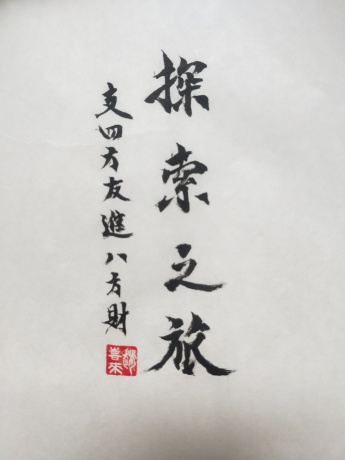 探索之旅
支四方友進八方財